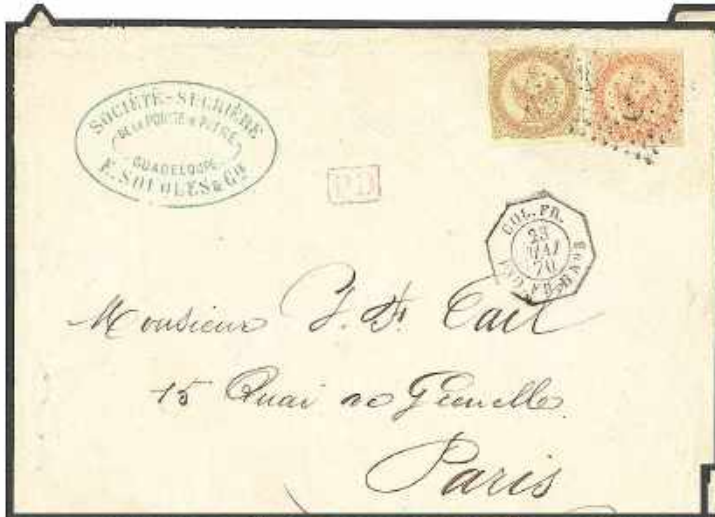 SOCIÉTÉ-SUCRIÈRE
DE LA POINTE A PITRE
GUADELOUPE
E. SOUQUES & Cie
P.D.
COL. FR.
23
MAI
70
Monsieur J. F. Cail
15 Quai de Grenelle
Paris